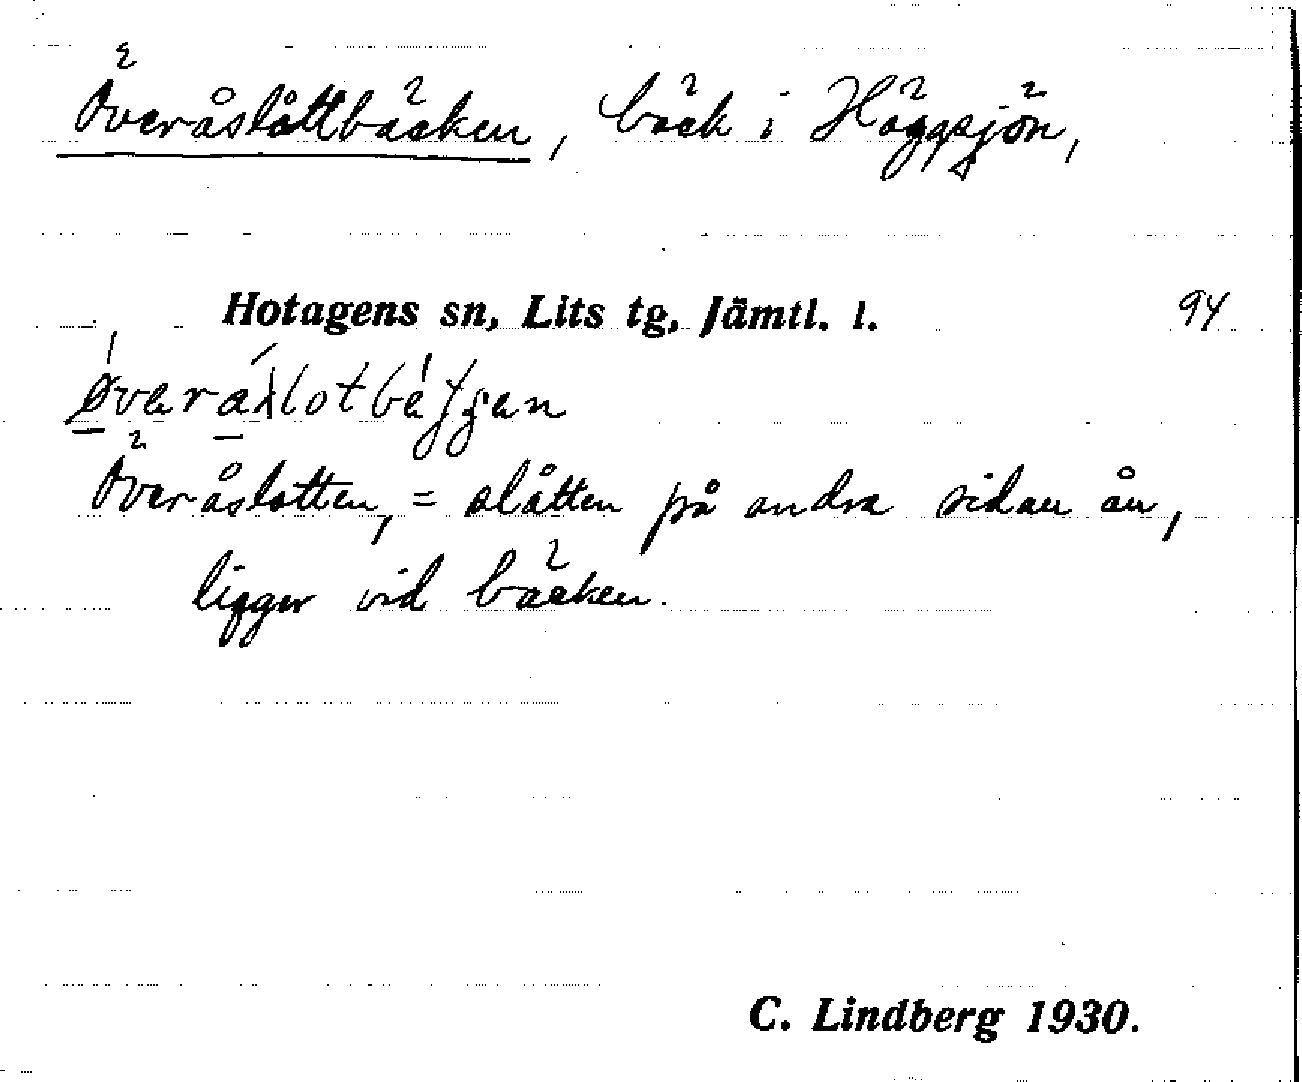 Överåslåttbäcken, bäck i Häggsjön,
Hotagens sn, Lits tg, Jämtl. l. 94
Överåslotten, = slåtten på andra sidan ån,
ligger vid bäcken.
C. Lindberg 1930.